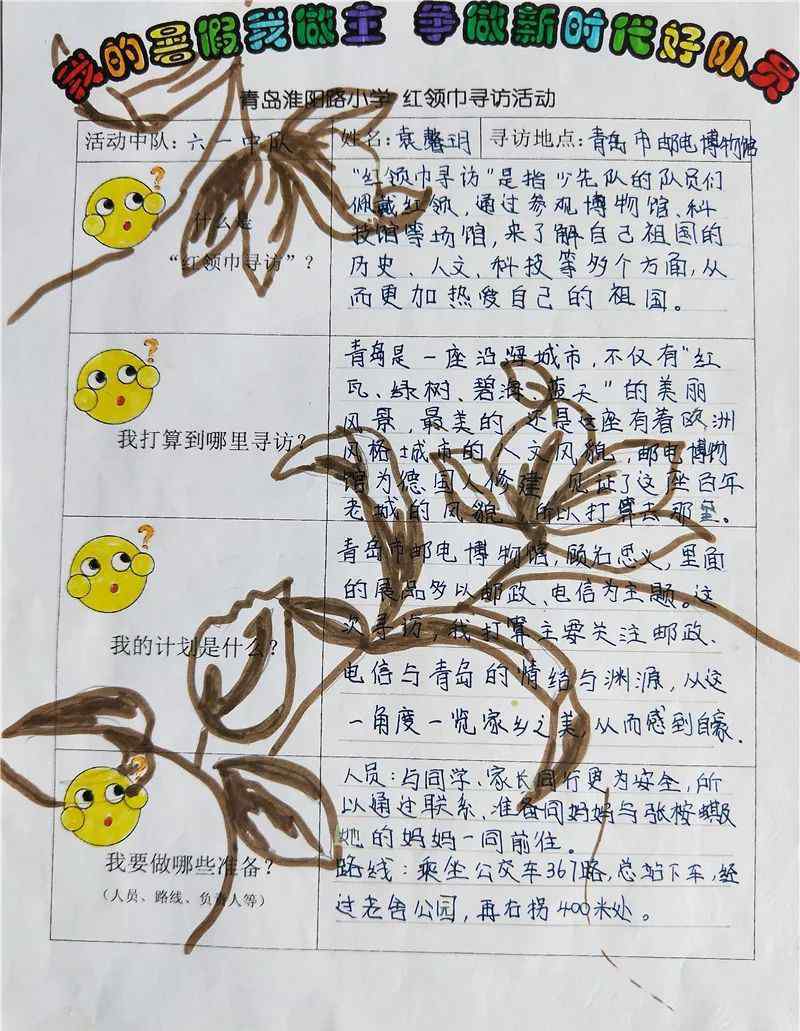 我的暑假我做主 争做新时代好队员
青岛淮阳路小学 红领巾寻访活动
活动中队：六一中队 姓名：袁馨玥 寻访地点：青岛市邮电博物馆
什么是
“红领巾寻访”？
“红领巾寻访”是指少先队的队员们
佩戴红领，通过参观博物馆、科
技馆等场馆，来了解自己祖国的
历史、人文、科技等多个方面，从
而更加热爱自己的祖国。
我打算到哪里寻访？
青岛是一座沿海城市，不仅有“红
瓦、绿树、碧海、蓝天”的美丽
风景，最美的，还是这座有着欧洲
风格城市的人文风貌，邮电博物
馆为德国人修建，见证了这座百年
老城的风貌，所以打算去那里。
我的计划是什么？
青岛市邮电博物馆，顾名思义，里面
的展品多以邮政、电信为主题。这
次寻访，我打算主要关注邮政、
电信与青岛的情结与渊源，从这
一角度一览家乡之美，从而感到自豪．
我要做哪些准备？
（人员、路线、负责人等）
人员：与同学、家长同行更为安全，所
以通过联系、准备同妈妈与张桉
她的妈妈一同前往。
路线：乘坐公交车367路，总站下车，经
过老舍公园，再右拐400米处。